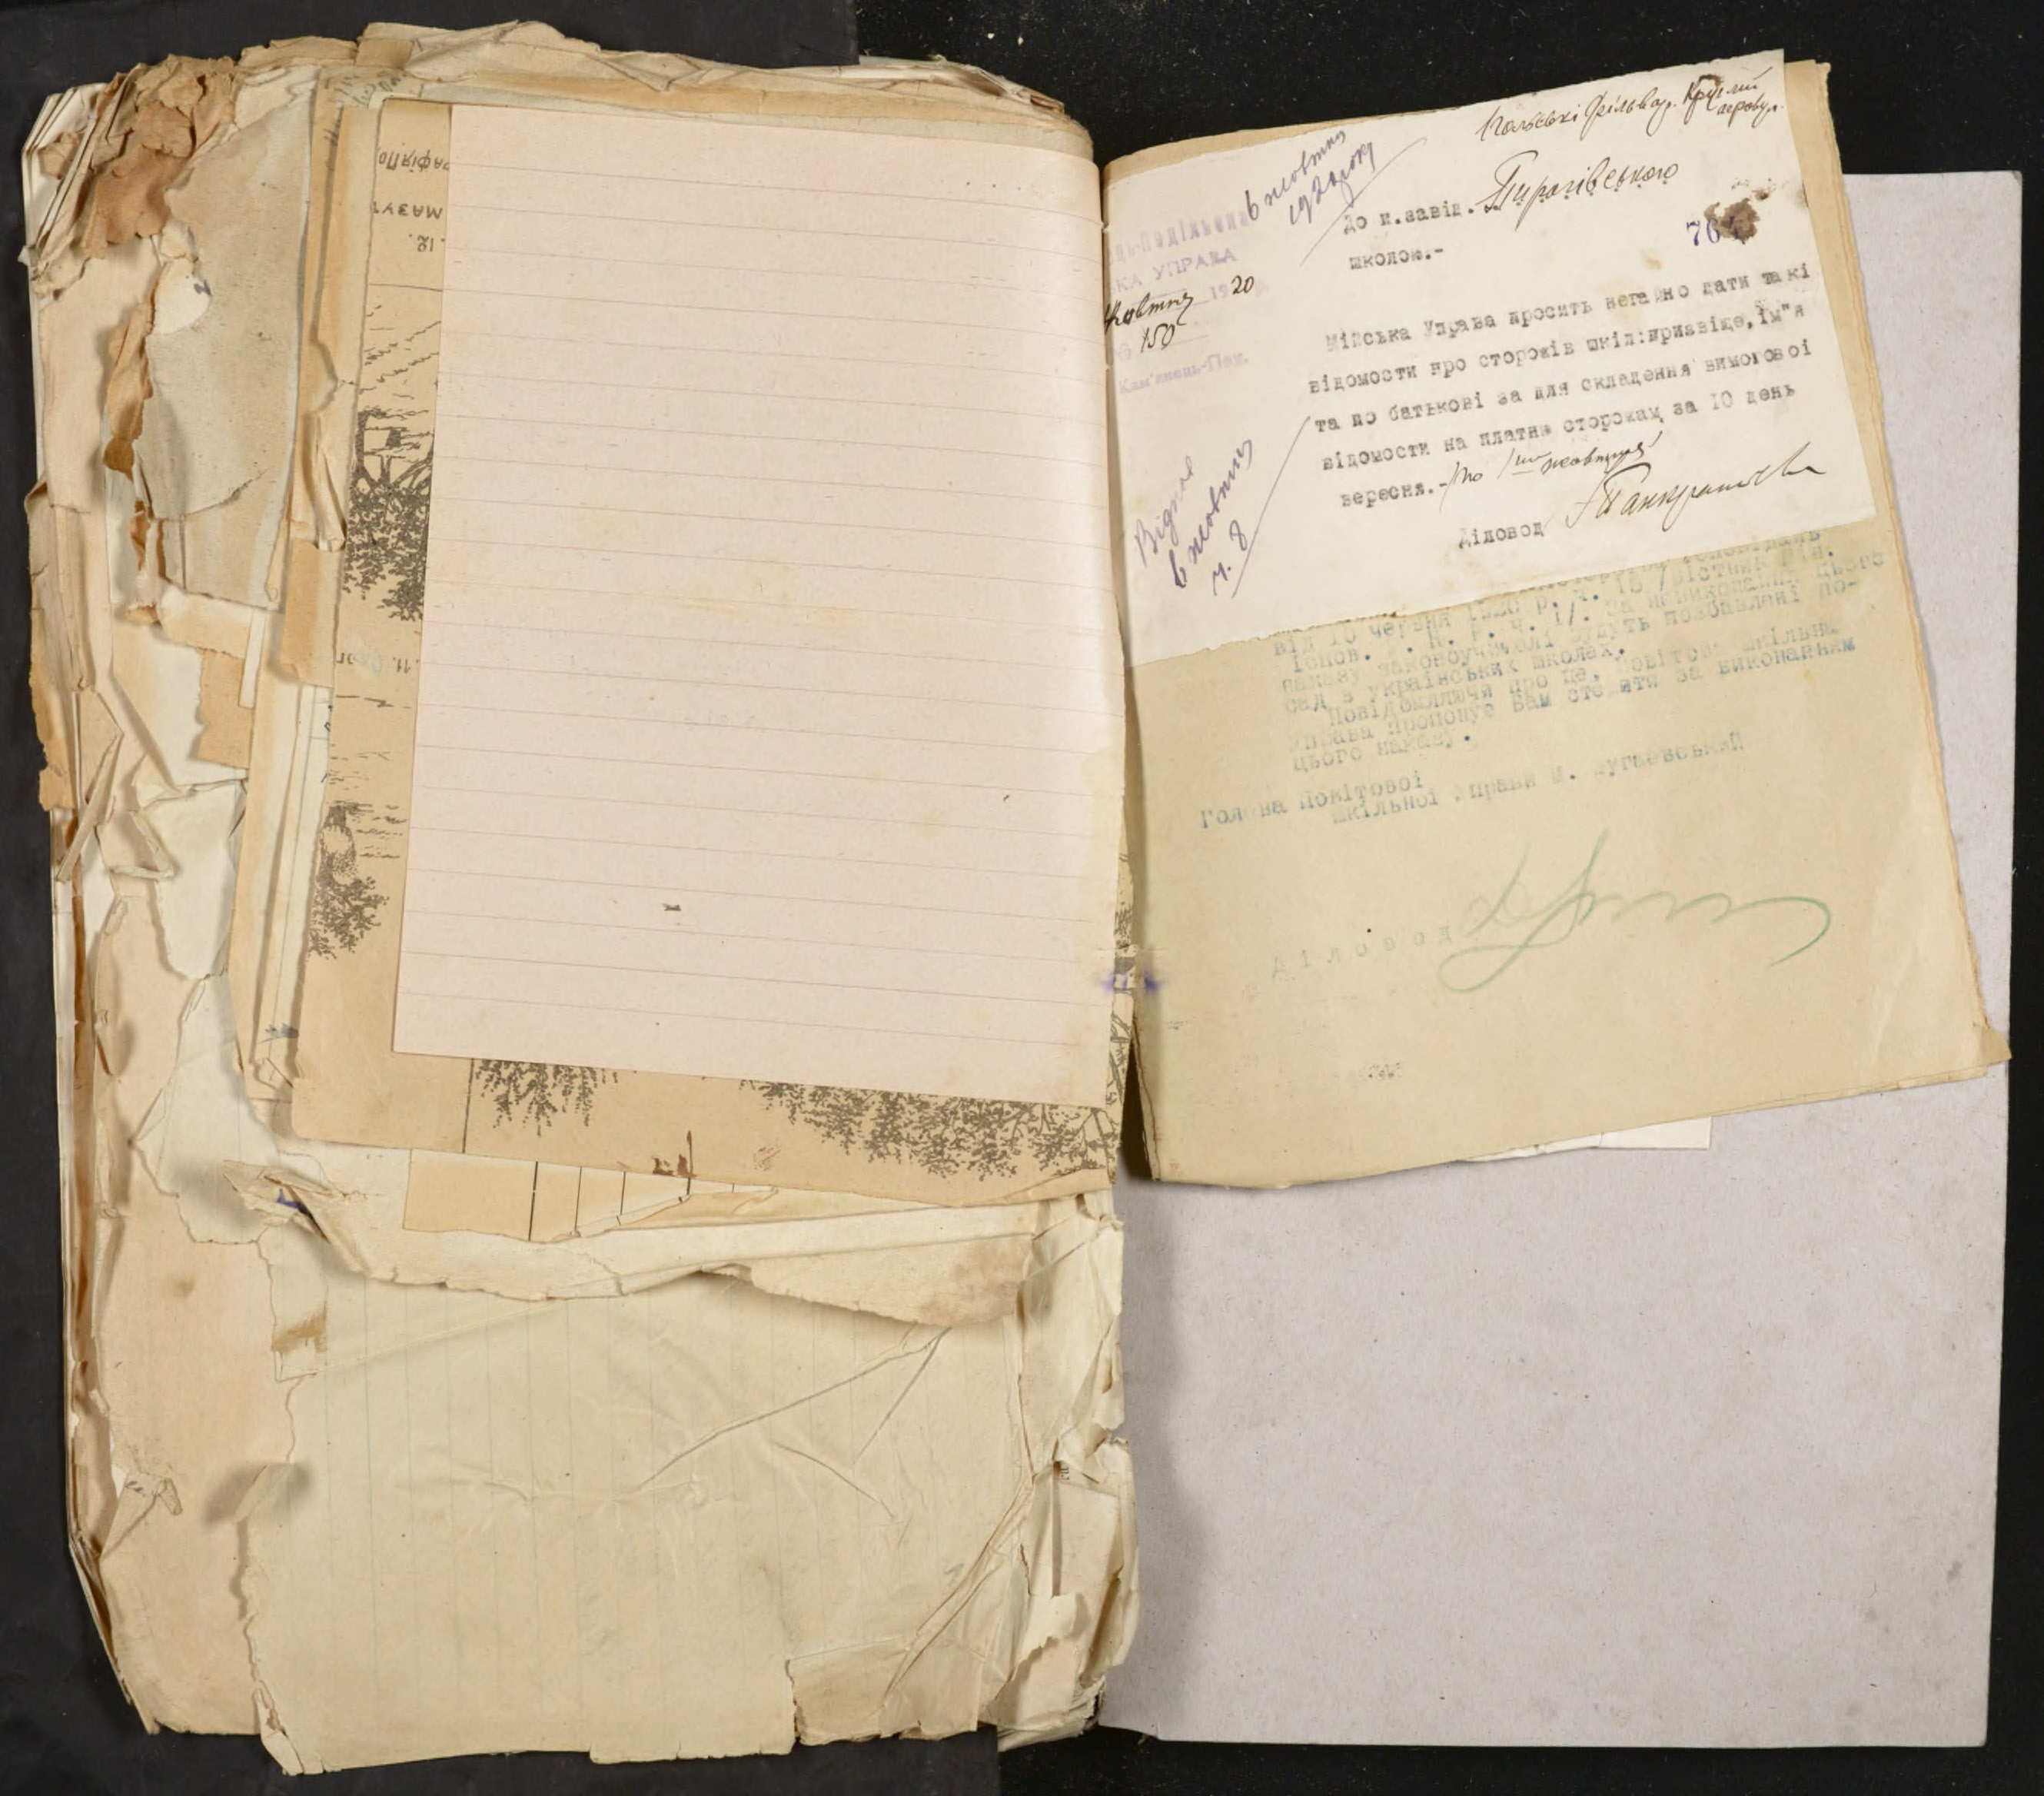 рафіяПо
МАЗУТ
12.
11.
6 жовтня
1920 року
Польські фільвар. Круглий
До п.завід. Пирогівського
школою.-
764
ець-Подільська
КА УПРАВА
Жовтня 1920
№ 150
Кам'янець-Под.
Мійська Управа просить негайно дати такі
відомости про сторожів шкіл:призвіще,їм"я
та по батькові за для складення вимогової
відомости на платню сторожам за 10 день
вересня.- по 1ше жовтня
Діловод
Відпов
6 жовтня
ч. 8
від 10 червня 1920 р. ч. 16 /Вістник Мін.
Іспов. У. Н. Р. ч. 17. За невиконання цього
наказу законоучителі будуть позбавлені по-
сад в українських школах.
Повідомляючи про це, Повітова шкільна
управа пропонує Вам стежити за виконанням
цього наказу.
Голова Повітової
шкільної Управи
Діловод